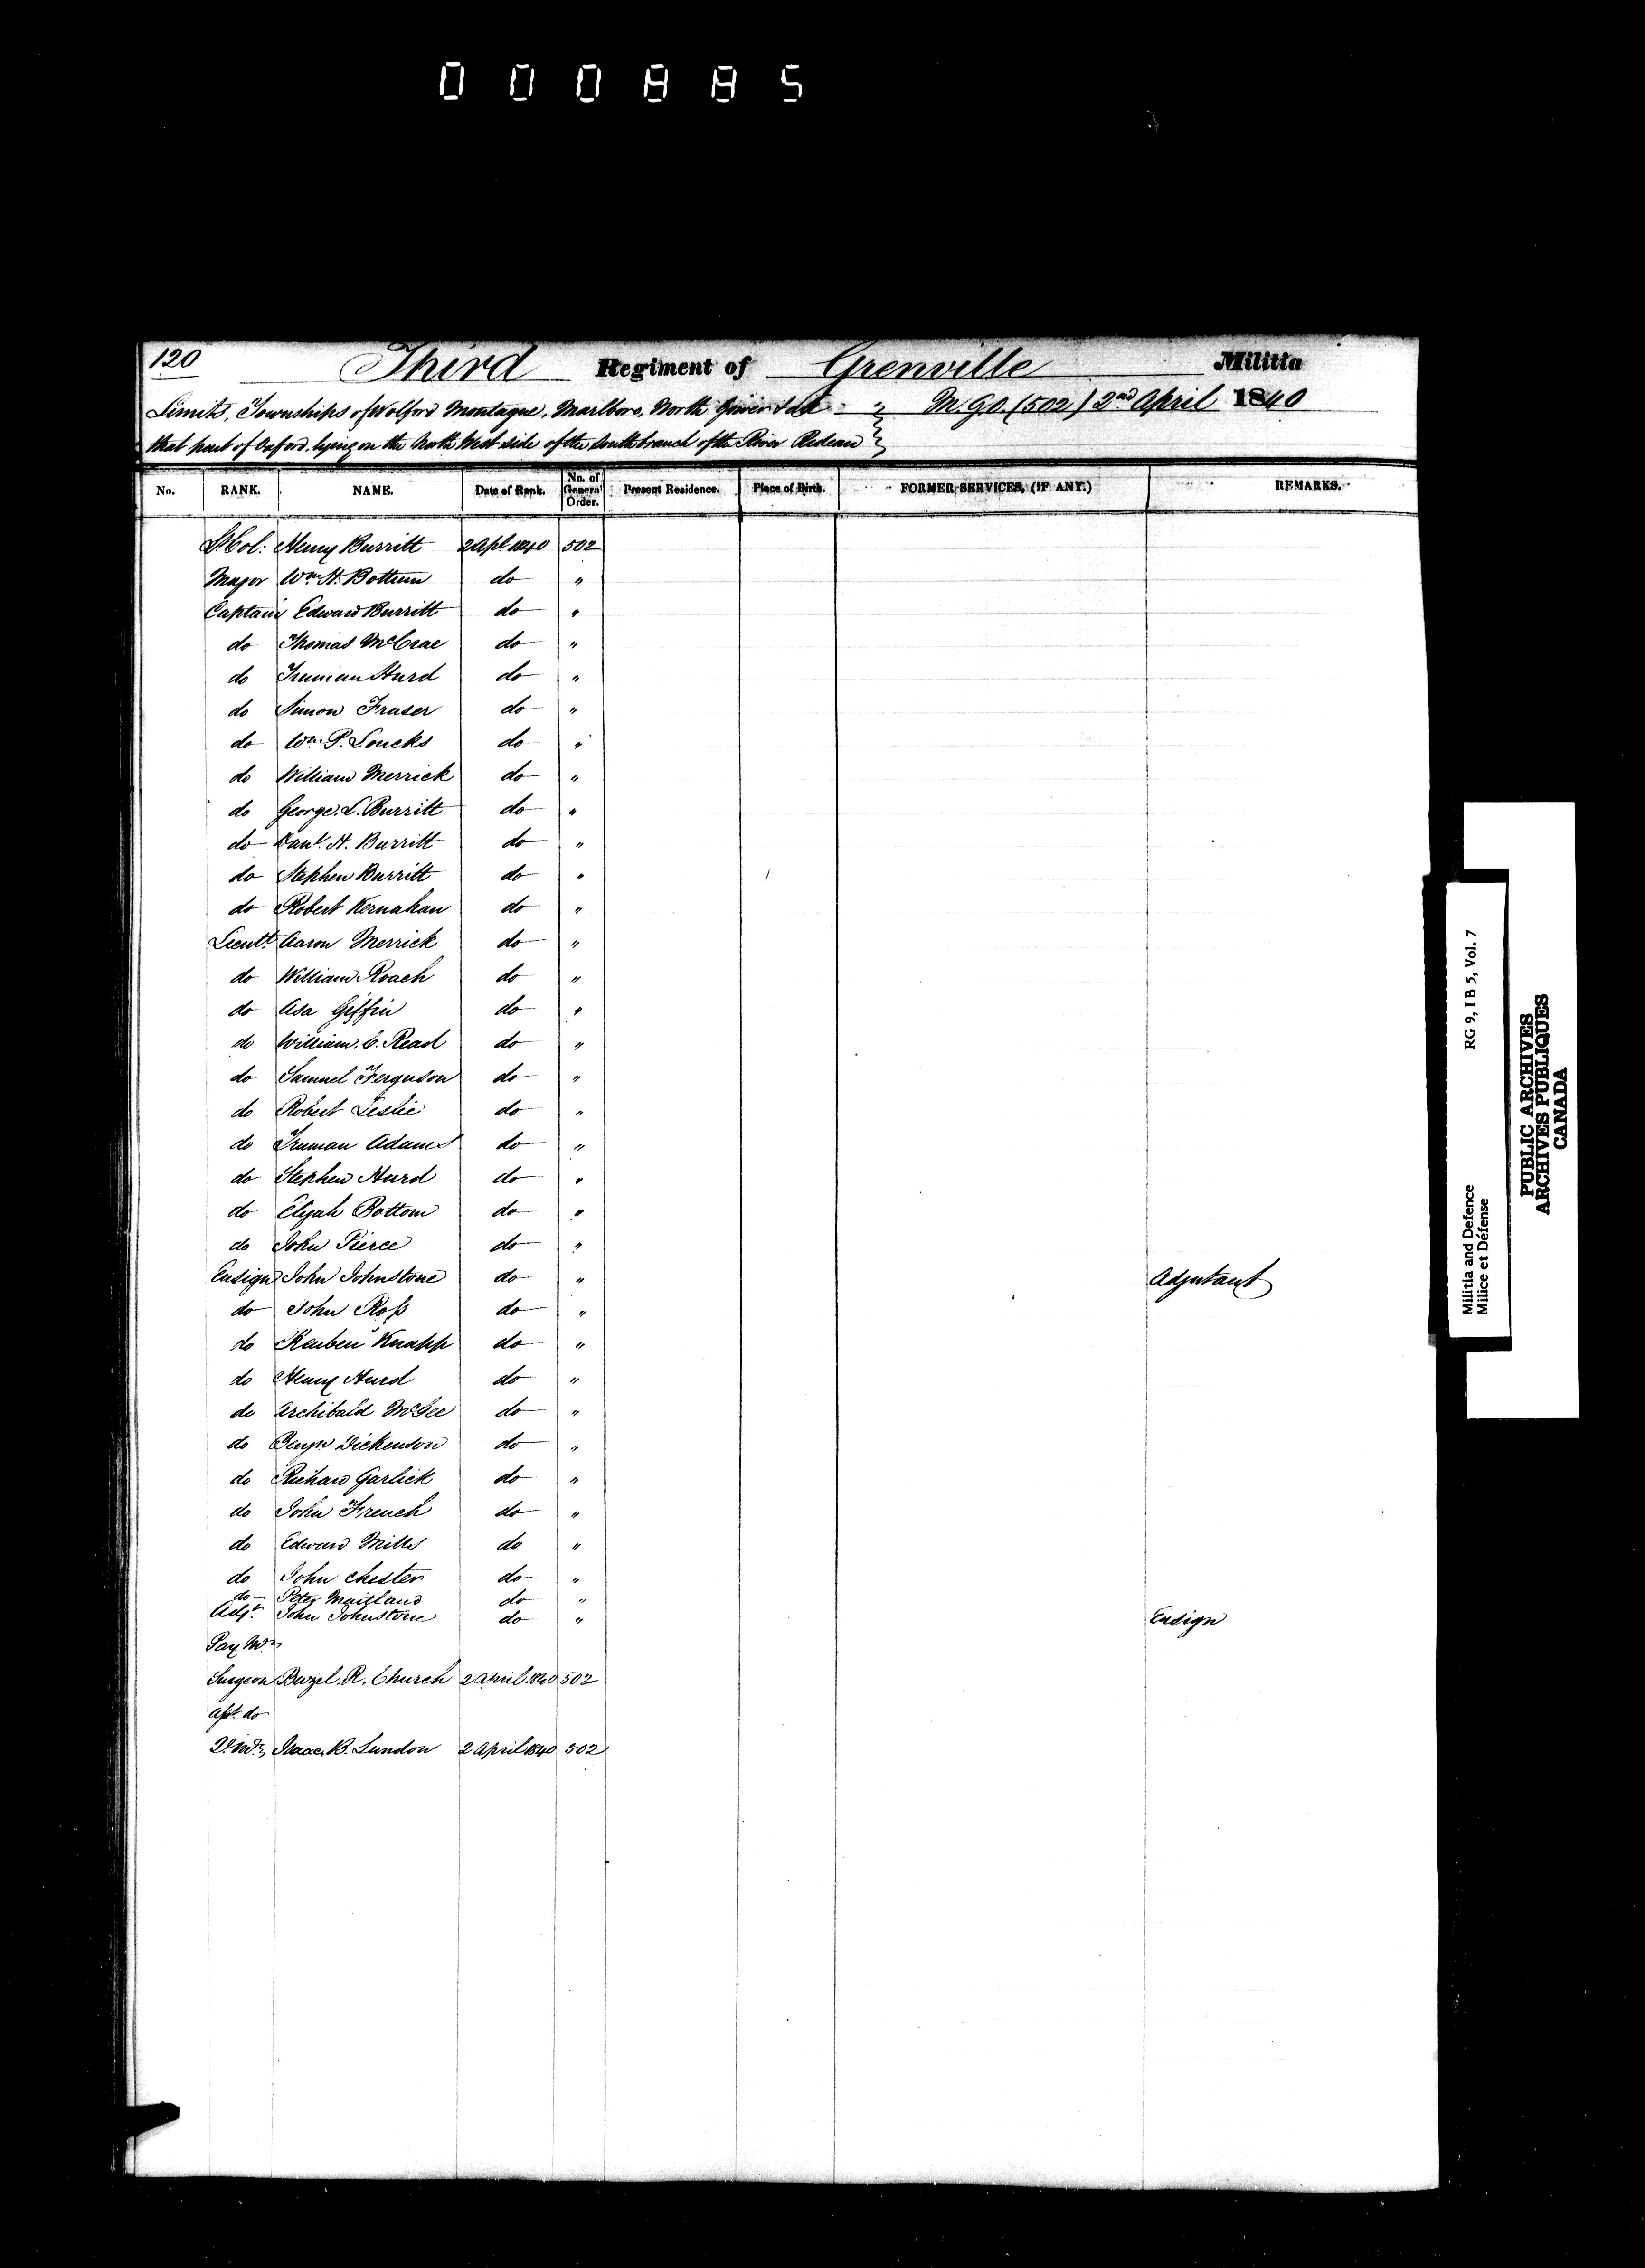 0 0 0 8 8 5
120 Third Regiment of Grenville Militia
Limits, Townships of Wolford Montague, Marlboro, North Gower & all M.G.O. (502) 2nd April 1840
that part of Oxford lying on the North West side of the South branch of the River Rideau
No. RANK. NAME. Date of Rank. No. of General Order. Present Residence. Place of Birth. FORMER SERVICES, (IF ANY.) REMARKS.
Lt. Col: Henry Burritt 2 Apl. 1840 502
Major Wm. H. Bottum do "
Captain Edward Burritt do "
do Thomas McCrae do "
do Truman Hurd do "
do Simon Fraser do "
do Wm. P. Loucks do "
do William Merrick do "
do George L. Burritt do "
do Danl. H. Burritt do "
do Stephen Burritt do "
do Robert Kernahan do "
Lieutt. Aaron Merrick do "
do William Roach do "
do Asa Giffin do "
do William C. Read do "
do Samuel Ferguson do "
do Robert Leslie do "
do Truman Adams do "
do Stephen Hurd do "
do Elijah Bottom do "
do John Pierce do "
Ensign John Johnstone do " Adjutant
do John Ross do "
do Reuben Knapp do "
do Henry Hurd do "
do Archibald McGee do "
do Benjn Dickenson do "
do Richard Garlick do "
do John French do "
do Edward Mills do "
do John Chester do "
do Peter Maitland do "
Adjt. John Johnstone do " Ensign
Pay Mr.
Surgeon Bazel. R. Church 2 April 1840 502
Asst. do
Qr. Mr. Isaac B. Lundon 2 April 1840 502
RG 9, I B 5, Vol. 7
Militia and Defence
Milice et Défense
PUBLIC ARCHIVES
ARCHIVES PUBLIQUES
CANADA